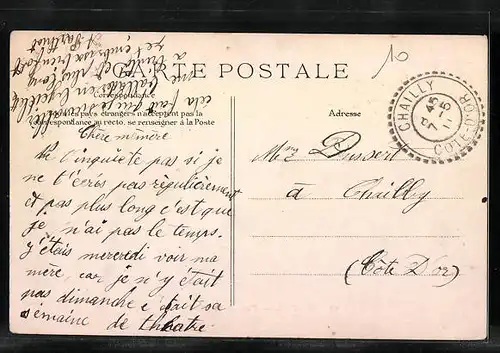 CARTE POSTALE
Correspondance
pays étrangers n'acceptent pas la
correspondance au recto, se renseigner à la Poste
Adresse
10
CHAILLY
7 45
11 5
COTE-D'OR
Chère mémère
ne t'inquiète pas si je
ne t'écris pas régulièrement
et pas plus long c'est que
je n'ai pas le temps.
J'étais mercredi voir ma
mère, car je n'y était
pas dimanche c'était sa
semaine de théâtre.
Dussert
à Chailly
(Côte D'Or)
cela faut
te plus long